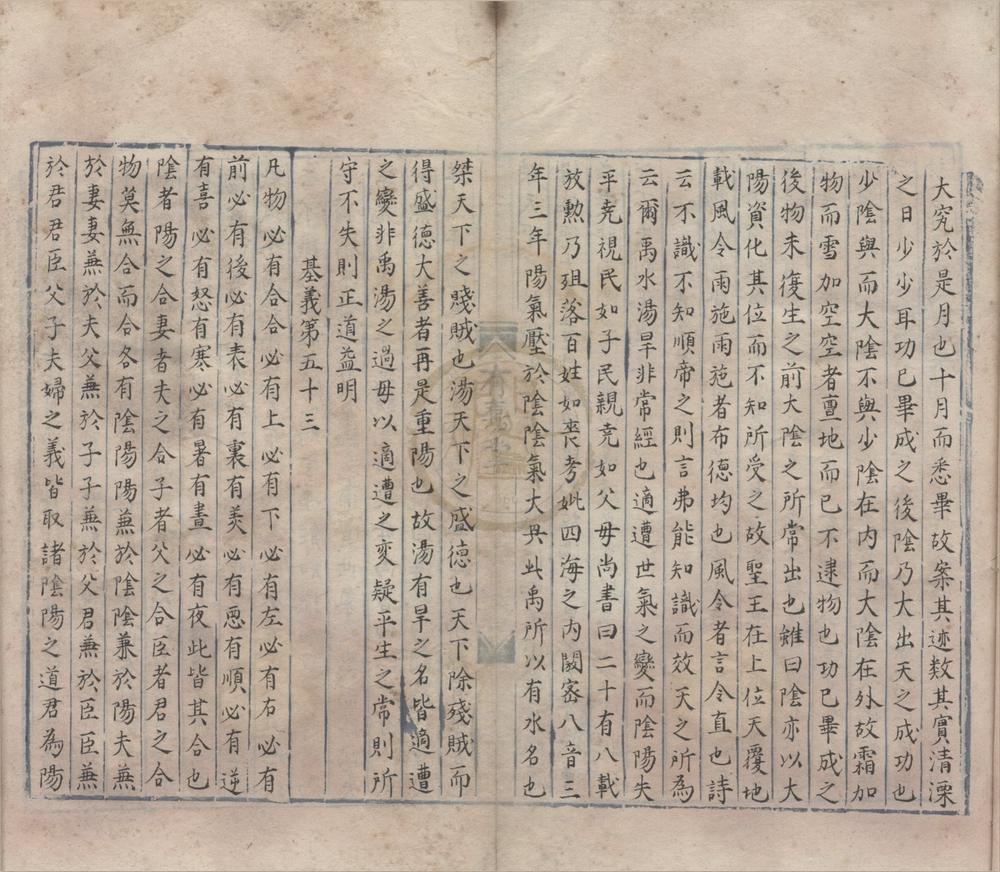 大究於是月也十月而悉畢故案其迹数其實清溧
之日少少耳功已畢成之後陰乃大出天之成功也
少陰與而大陰不與少陰在内而大陰在外故霜加
物而雪加空空者亶地而已不逮物也功已畢成之
後物未復生之前大陰之所常出也雖曰陰亦以大
陽資化其位而不知所受之故聖王在上位天覆地
載風令雨施雨施者布德均也風令者言令直也詩
云不識不知順帝之則言弗能知識而效天之所為
云爾禹水湯旱非常經也適遭世氣之變而陰陽失
平堯視民如子民親堯如父母尚書曰二十有八載
放勲乃殂落百姓如喪考妣四海之内閼宻八音三
年三年陽氣壓於陰陰氣大興此禹所以有水名也
桀天下之賤賊也湯天下之盛德也天下除殘賊而
得盛德大善者再是重陽也故湯有旱之名皆適遭
之變非禹湯之過毋以適遭之变疑平生之常則所
守不失則正道益明
基義第五十三
凡物必有合合必有上必有下必有左必有右必有
前必有後必有表必有裏有美必有惡有順必有逆
有喜必有怒有寒必有暑有晝必有夜此皆其合也
陰者陽之合妻者夫之合子者父之合臣者君之合
物莫無合而合各有陰陽陽兼於陰陰兼於陽夫兼
於妻妻兼於夫父兼於子子兼於父君兼於臣臣兼
於君君臣父子夫婦之義皆取諸陰陽之道君為陽